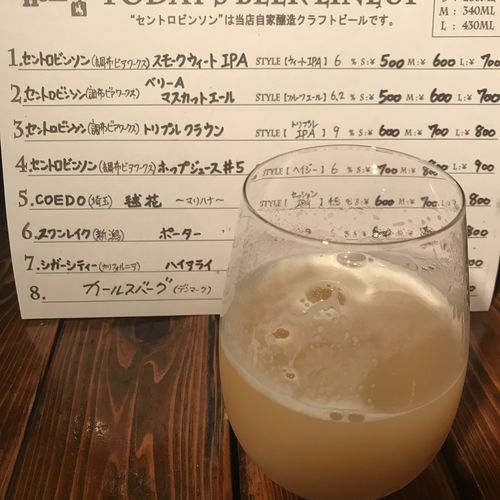 TODAY'S BEER LINEUP
"セントロビンソン"は当店自家醸造クラフトビールです。
M : 340ML
L : 430ML
1. セントロビンソン(調布ビアワークス) スモークウィート IPA STYLE【ウィートIPA】6 % S:¥ 500 M:¥ 600 L:¥ 700
2. セントロビンソン(調布ビアワークス) ベリーA マスカットエール STYLE【フルーツエール】6.2 % S:¥ 500 M:¥ 600 L:¥ 700
3. セントロビンソン(調布ビアワークス) トリプルクラウン STYLE【トリプル IPA】9 % S:¥ 600 M:¥ 700 L:¥ 800
4. セントロビンソン(調布ビアワークス) ホップジュース#5 STYLE【ヘイジー】6 % S:¥ 700 M:¥ 800 L:¥ 900
5. COEDO(埼玉) 毬花 〜マリハナ〜 STYLE【セッション IPA】4.5 % S:¥ 600 M:¥ 700 L:¥ 800
6. スワンレイク(新潟) ポーター 800
7. シガーシティー(カリフォルニア) ハイアライ
8. カールスバーグ(デンマーク)